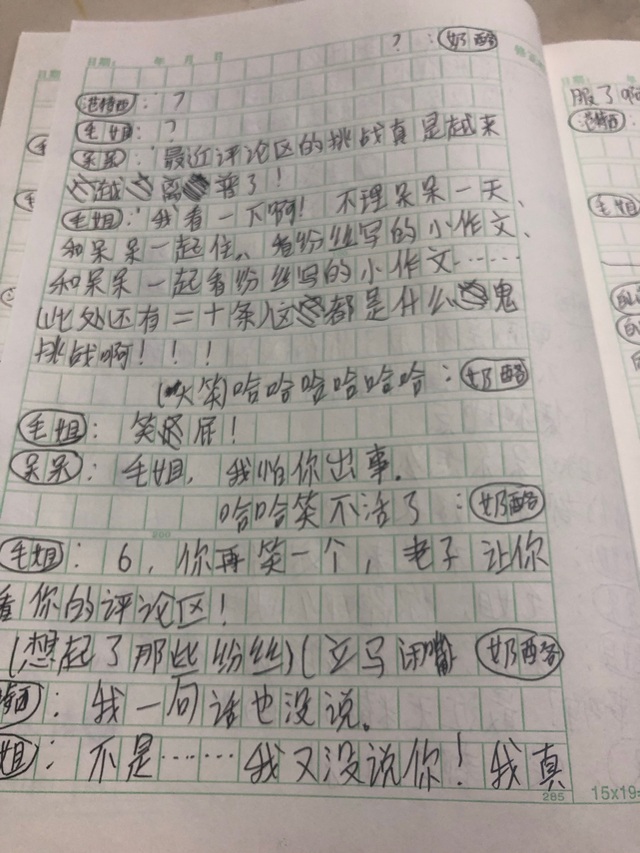 日期： 年 月 日
？：奶酪
范特西：？
毛姐：？
呆呆：最近评论区的挑战真是越来
越离普了！
毛姐：我看一下啊！不理呆呆一天、
和呆呆一起住、看纷丝写的小作文、
和呆呆一起看纷丝写的小作文……
(此处还有二十条)这都是什么鬼
挑战啊！！！
(大笑)哈哈哈哈哈哈：奶酪
毛姐：笑屁！
呆呆：毛姐，我怕你出事。
哈哈笑不活了：奶酪
200
毛姐：6，你再笑一个，老子让你
看你的评论区！
(想起了那些纷丝)(立马闭嘴 奶酪
特西：我一句话也没说。
姐：不是……我又没说你！我真
285
15x19=
服了啊
范特西：
毛姐：